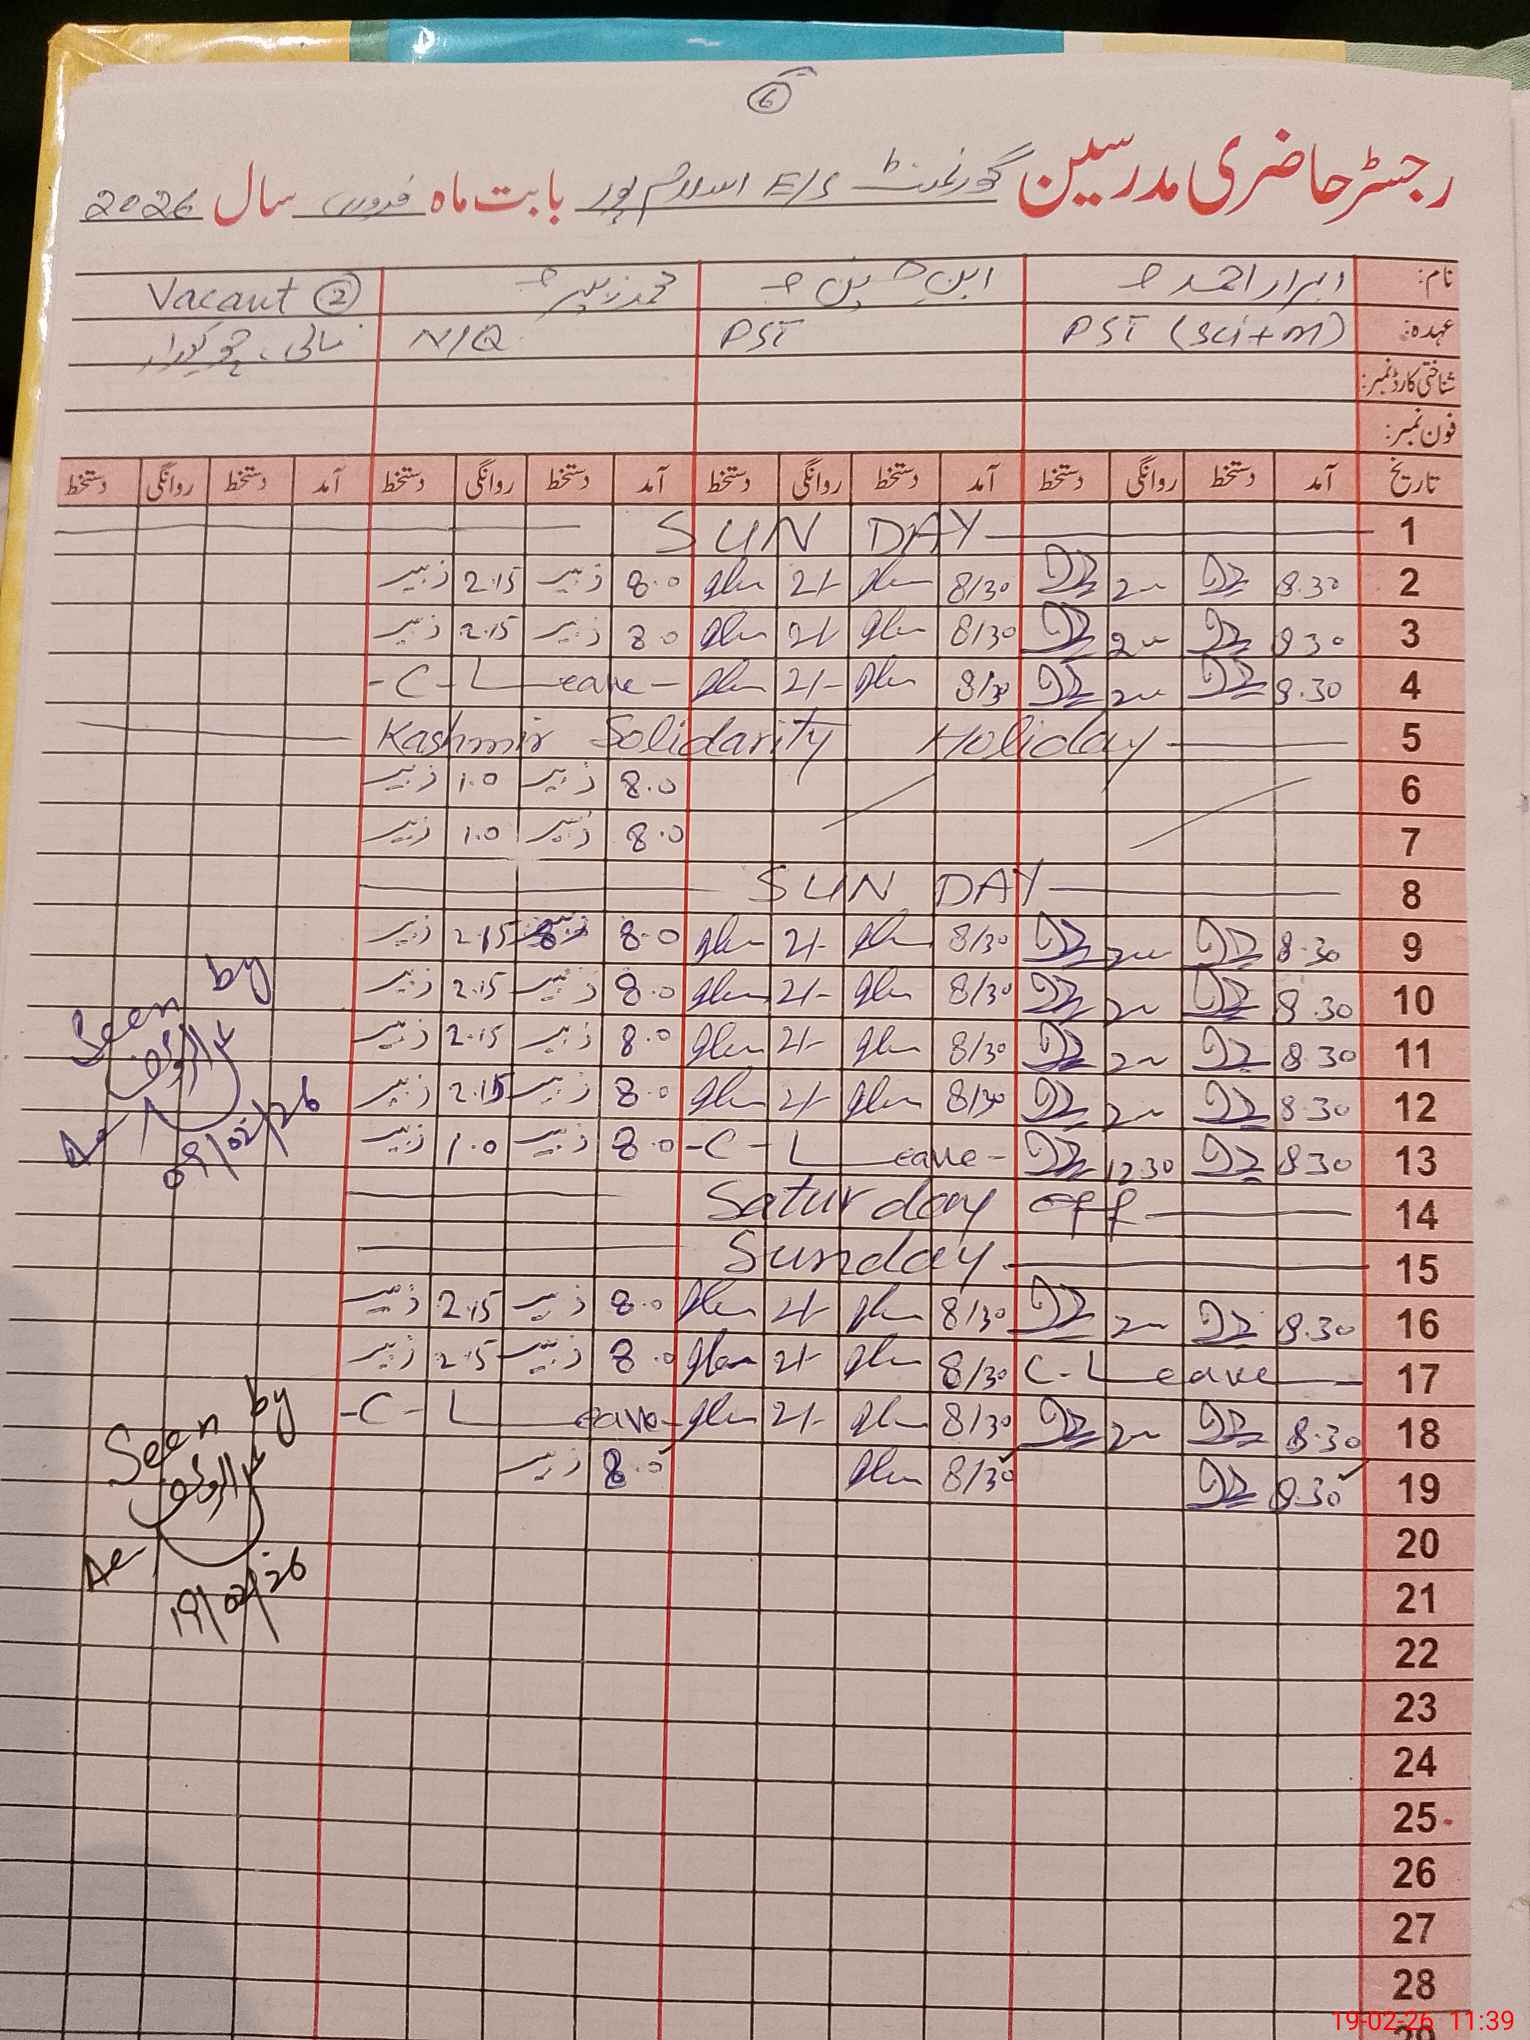 6
رجسٹر حاضری مدرسین گورنمنٹ E/S اسلام پور بابت ماہ فروری سال 2026
نام: ابرار احمد محمد زبیر Vacant 2
عہدہ: PST (Sci+m) PST N/Q
شناختی کارڈ نمبر:
فون نمبر:
تاریخ آمد دستخط روانگی دستخط آمد دستخط روانگی دستخط آمد دستخط روانگی دستخط آمد دستخط روانگی دستخط
1 SUN DAY
2 8.30 8/30 2/- 8.0 زبیر 2.15 زبیر
3 8 30 8/30 2/- 8.0 زبیر 2.15 زبیر
4 8.30 8/30 2/- -C-Leave-
5 Kashmir Solidarity Holiday
6 8.0 زبیر 1.0 زبیر
7 8.0 زبیر 1.0 زبیر
8 SUN DAY
9 8.30 8/30 2/- 8.0 زبیر 2.15 زبیر
10 8.30 8/30 2/- 8.0 زبیر 2.15 زبیر
11 8.30 8/30 2/- 8.0 زبیر 2.15 زبیر
12 8.30 8/30 2/- 8.0 زبیر 2.15 زبیر
13 8.30 12.30 -C-Leave- 8.0 زبیر 1.0 زبیر
14 Saturday off
15 Sunday
16 8.30 8/30 2/- 8.0 زبیر 2.15 زبیر
17 C-Leave 8/30 2/- 8.0 زبیر 2.15 زبیر
18 8.30 8/30 2/- -C-Leave-
19 8.30 8/30 8.0 زبیر
20
21
22
23
24
25
26
27
28
29
Seen by
09/02/26
Seen by
19/02/26
19-02-26 11:39